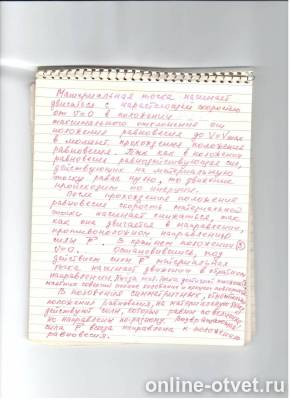 Материальная точка начинает
двигаться с нарастающей скоростью
от V=0 в положении
максимального отклонения от
положения равновесия до V=Vмах
в момент прохождения положения
равновесия. Так как в положении
равновесия равнодействующая сил,
действующих на материальную
точку равна нулю, то движение
происходит по инерции.
После прохождения положения
равновесия скорость материальной
точки начинает снижаться, так
как она двигается в направлении,
противоположном направлению
силы F. В крайнем положении
V=0. Остановившись, под
действием силы F материальная
точка начинает движение в обратном
направлении. Когда точка
совершит полное колебание и процесс
В положениях симметричных, относительно
положения равновесия, на материальную точку
действуют силы, которые равны по величине,
но направлены по-разному. Возвращающая
сила F всегда направлена к положению
равновесия.
online-otvet.ru